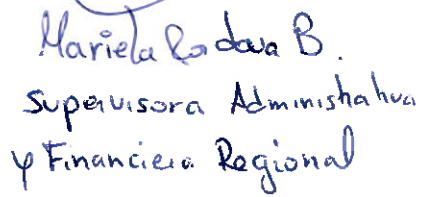 Mariela Rodova B.
Supervisora Administrativa
y Financiera Regional